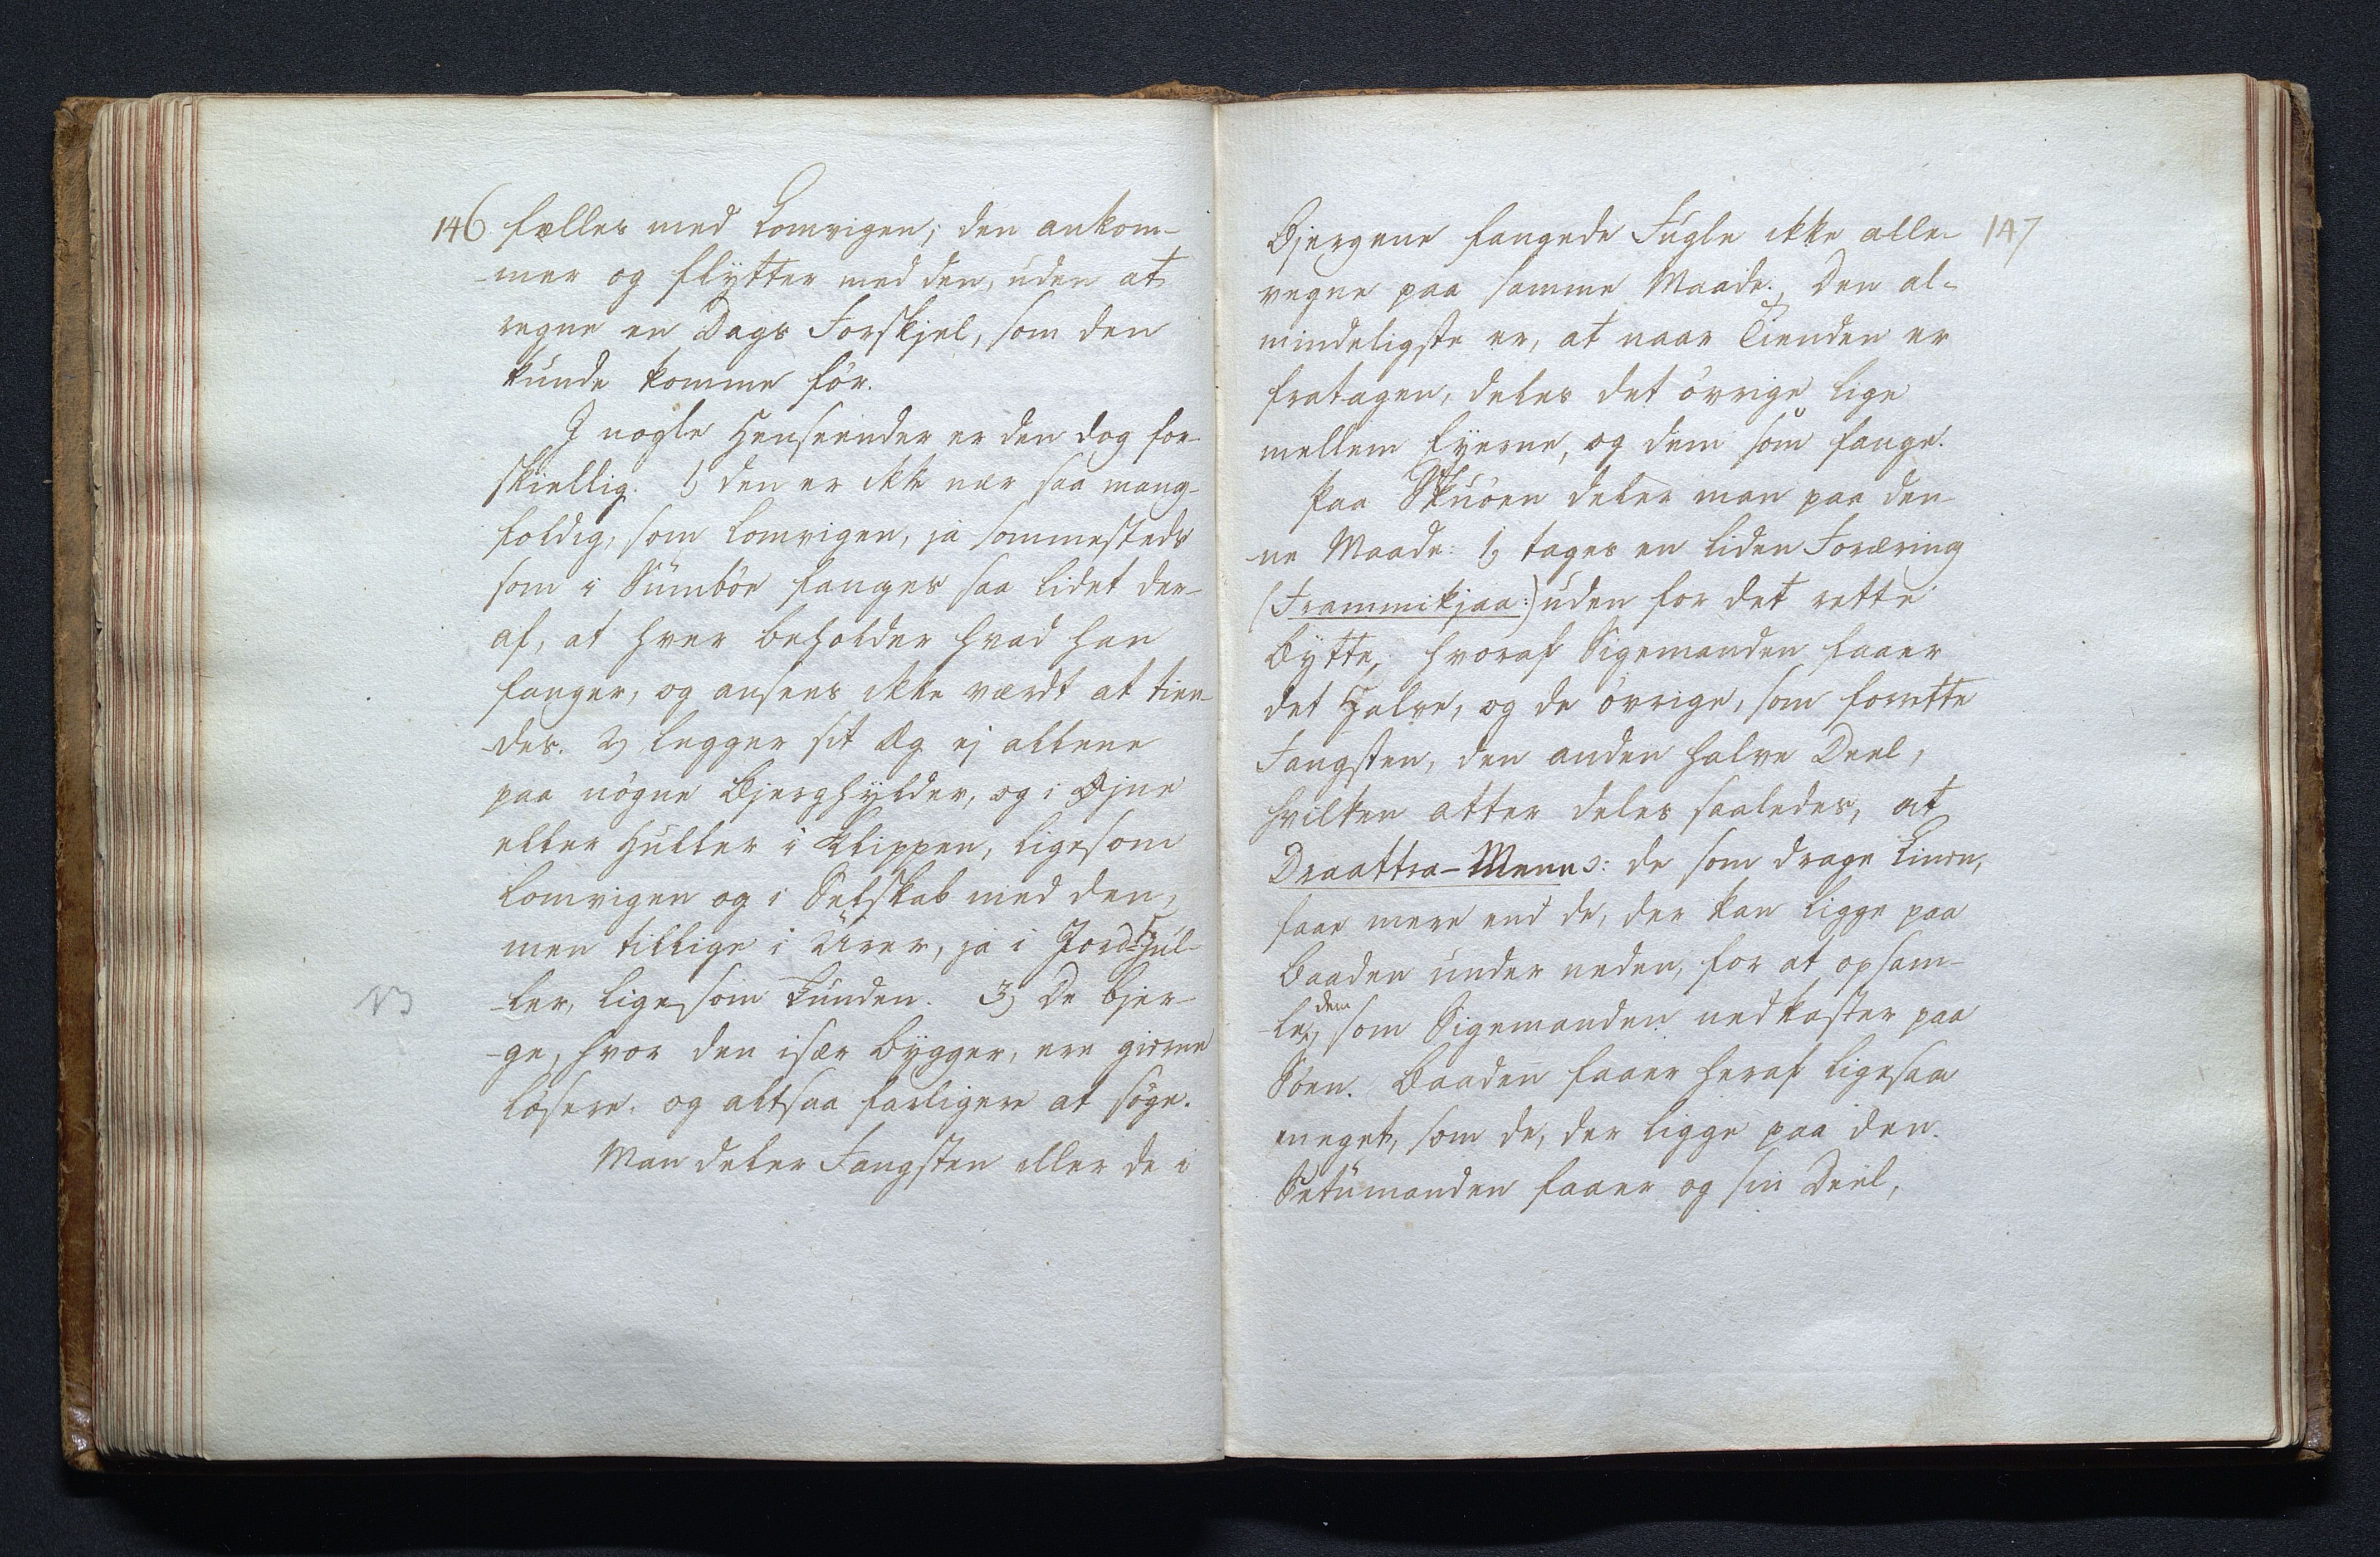 146 fælles med Lomvigen; den ankom-
mer og flÿtter med den, uden at
regne en Dags Forskjel, som den
kunde komme för.
I nogle Henseender er den dog for-
skiellig. 1) den er ikke nær saa mang-
foldig, som Lomvigen, ja sommesteds
som i Sumböe fanges saa lidet der-
af, at hver beholder hvad han
fanger, og ansees ikke værdt at tien-
des. 2) legger sit Æg ej allene
paa nögne Bjerghÿlder, og i
eller Huller i Klippen, ligesom
Lomvigen og i Selskab med den,
men tillige i Urer, ja i Jord-Hul-
ler, ligesom Lunden. 3) De Bjer-
ge, hvor den især bÿgger, ere gierne
lösere, og altsaa farligere at söge.
Man deler Fangsten eller de i
Bjergene fangede Fugle ikke alle- 147
vegne paa samme Maade. Den al-
mindeligste er, at naar Tienden er
fratagen, deles det övrige lige
mellem Eÿerne, og dem som fange.
Paa Skuöen deler man paa den-
ne Maade: 1) tages en liden Foræring
(Frammikjaa:) uden for det rette
Bÿtte, hvoraf Sigemanden faaer
det Halve, og de övrige, som forrette
Fangsten, den anden halve Deel,
hvilken atter deles saaledes, at
Draattra-Menn ɔ: de som drage Linen,
faae mere end de, der kan ligge paa
Baaden under neden, for at opsam-
le dem, som Sigemanden nedkaster paa
Söen. Baaden faaer heraf ligesaa
meget, som de, der ligge paa den.
Setumanden faaer og sin Deel,